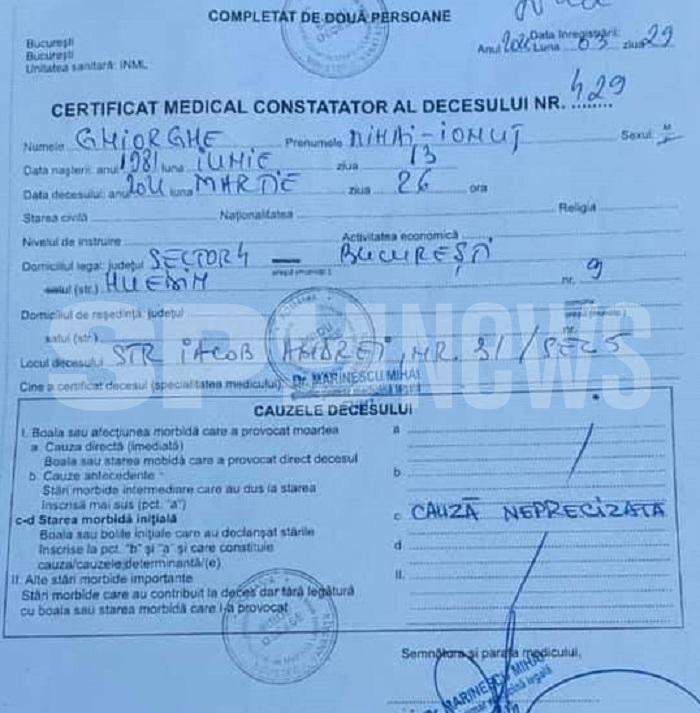 COMPLETAT DE DOUĂ PERSOANE
București
București
Unitatea sanitară: INML
Data înregistrării:
Anul 2021 Luna 03 ziua 29
CERTIFICAT MEDICAL CONSTATATOR AL DECESULUI NR. 429
Numele GHIORGHE Prenumele MIHAI-IONUȚ Sexul M
Data nașterii: anul 1981 luna IUNIE ziua 13
Data decesului: anul 2021 luna MARTIE ziua 26 ora
Starea civilă Naționalitatea Religia
Nivelul de instruire Activitatea economică
Domiciliul legal: județul SECTOR 4 BUCUREȘTI
satul (str.) HUEDIN nr. 9
Domiciliul de reședință: județul
satul (str.) nr.
SPYNEWS
Locul decesului STR IACOB ANDREI, NR. 31 / SEC 5
Cine a certificat decesul (specialitatea medicului): Dr. MARINESCU MIHAI
CAUZELE DECESULUI
I. Boala sau afecțiunea morbidă care a provocat moartea a
a. Cauza directă (imediată)
Boala sau starea mobidă care a provocat direct decesul
b. Cauze antecedente b
Stări morbide intermediare care au dus la starea
înscrisă mai sus (pct. "a")
c-d Starea morbidă inițială c CAUZĂ NEPRECIZATĂ
Boala sau bolile inițiale care au declanșat stările
înscrise la pct. "b" și "a" și care constituie d
cauza/cauzele determinantă/(e)
II. Alte stări morbide importante II.
Stări morbide care au contribuit la deces dar fără legătură
cu boala sau starea morbidă care l-a provocat
Semnătura și parafa medicului,
Dr. MARINESCU MIHAI